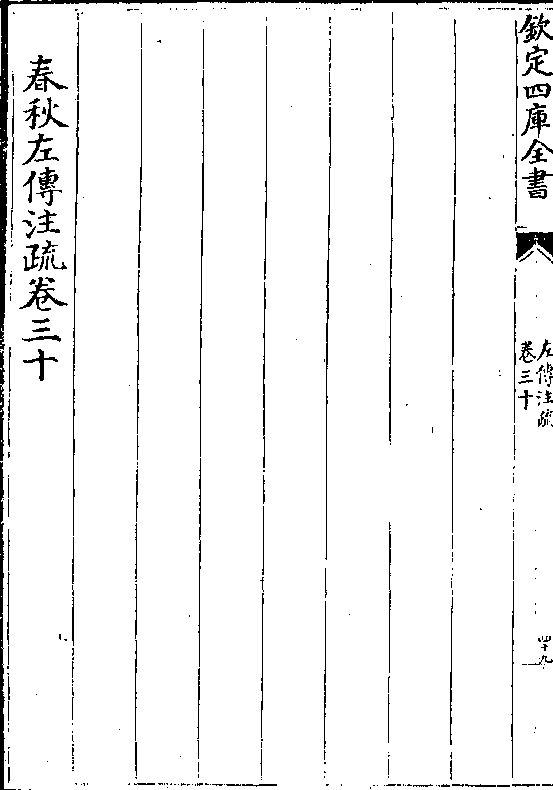 欽定四庫全書
左傳注疏
卷三十
四十九
春秋左傳注疏卷三十